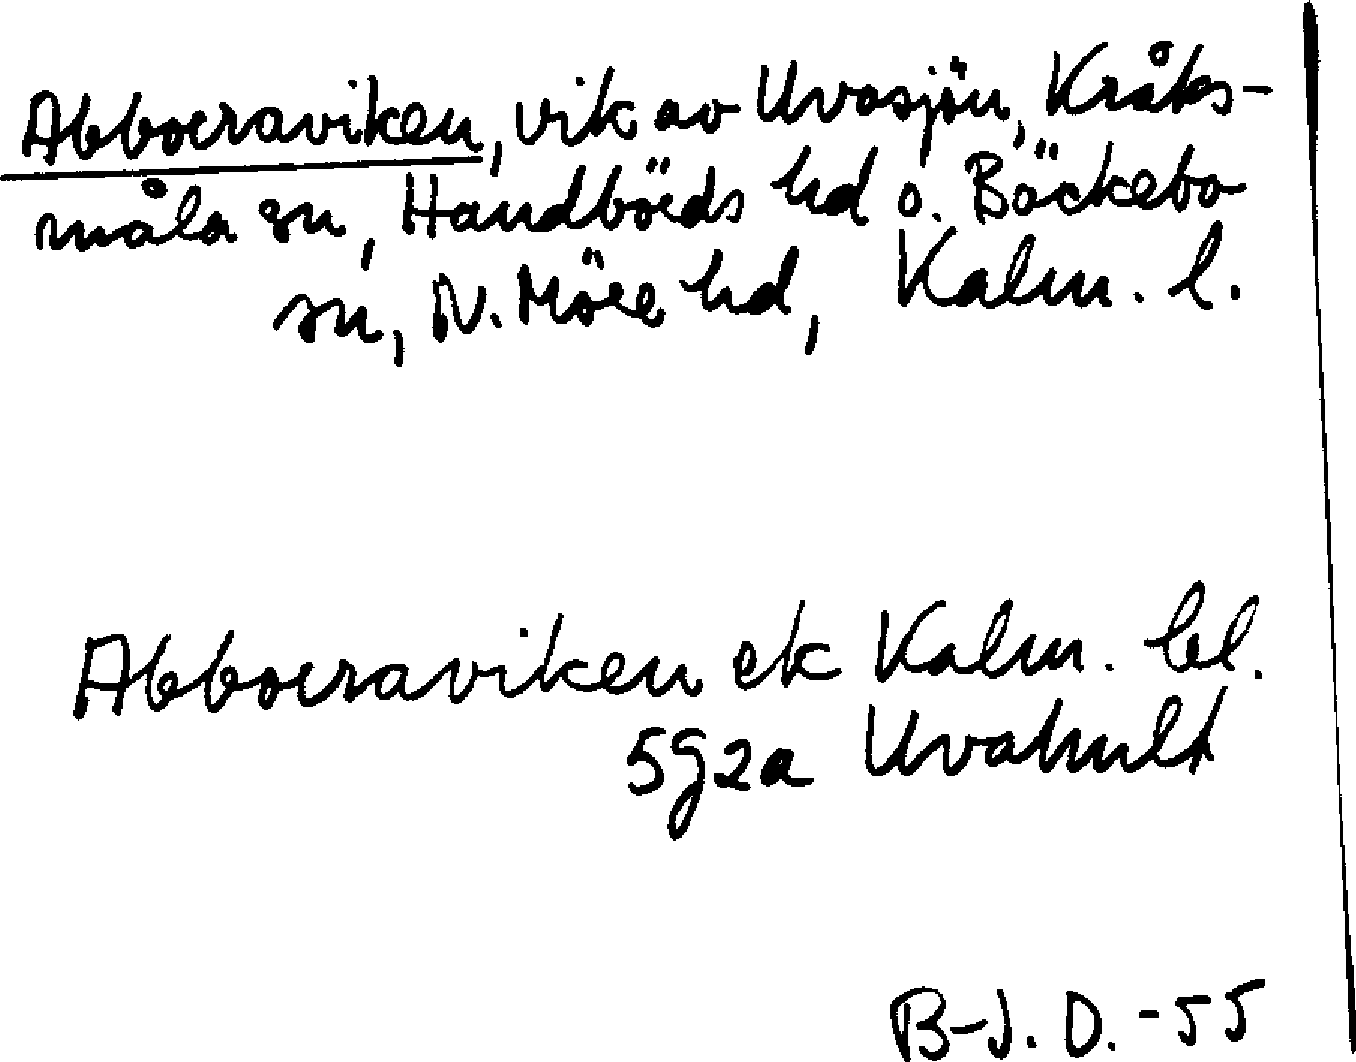 Abborraviken, vik av Uvasjön, Kråks-
måla sn, Handbörds hd o. Bäckebo
sn, N. Möre hd, Kalm. l.
Abborraviken ek Kalm. bl.
5g2a Uvahult
B-J. D. -55